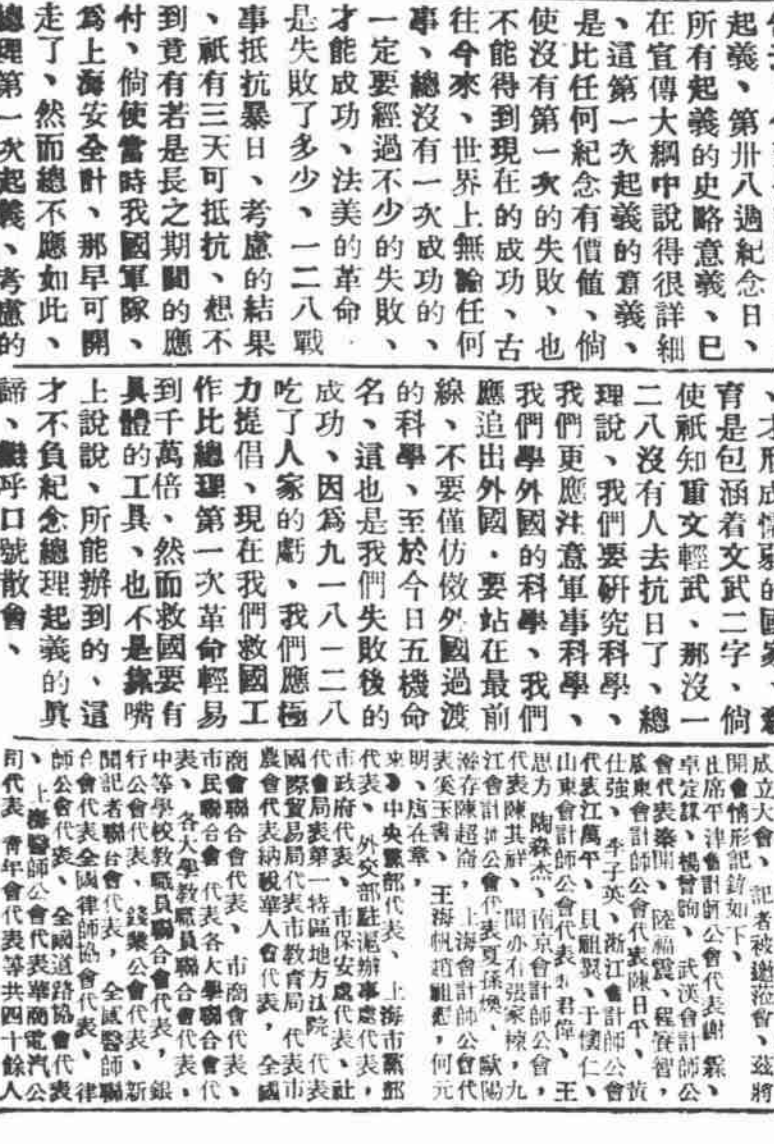 起義、第卅八週紀念日、
所有起義的史略意義、已
在宣傳大綱中說得很詳細
、這第一次起義的意義、
是比任何紀念有價値、倘
使沒有第一次的失敗、也
不能得到現在的成功、古
往今來、世界上無論任何
事、總沒有一次成功的、
一定要經過不少的失敗、
才能成功、法美的革命、
是失敗了多少、一二八戰
事抵抗暴日、考慮的結果
、祇有三天可抵抗、想不
到竟有若是長之期間的應
付、倘使當時我國軍隊、
爲上海安全計、那早可開
走了、然而總不應如此、
總理第一次起義、考慮的
、才形成懦弱的國家、教
育是包涵着文武二字、倘
使祇知重文輕武、那沒一
二八沒有人去抗日了、總
理說、我們要硏究科學、
我們更應注意軍事科學、
我們學外國的科學、我們
應追出外國、要站在最前
線、不要僅仿傚外國過渡
的科學、至於今日五機命
名、這也是我們失敗後的
成功、因爲九一八一二八
吃了人家的虧、我們應極
力提倡、現在我們救國工
作比總理第一次革命輕易
到千萬倍、然而救國要有
具體的工具、也不是靠嘴
上說說、所能辦到的、這
才不負紀念總理起義的眞
諦、繼呼口號散會、
成立大會、記者被邀蒞會、茲將
開會情形記錄如下、
出席平津會計師公會代表謝霖、
卓定謀、楊曾詢、武漢會計師公
會代表秦開、陸福震、程養智，
廣東會計師公會代表陳日平、黃
仕強、李子英、浙江會計師公會
代表江萬平、貝祖翼、于懷仁、
山東會計師公會代表 君偉、王
思方、陶森杰、南京會計師公會，
代表陳其祥、聞亦有張家棟，九
江會計師公會代表夏孫煥、歐陽
瀚存陳超 、上海會計師公會代
表奚玉書、王海帆趙祖慰，何元
明、唐在章，
來 中央黨部代表、上海市黨部
代表、外交部駐滬辦事處代表，
市政府代表、市保安處代表、社
會局代表第一特區地方法院代表
國際貿易局代表市教育局代表市
農會代表納稅華人會代表，全國
商會聯合會代表、市商會代表、
市民聯合會代表各大學聯合會代
表、各大學教職員聯合會代表、
中等學校教職員聯合會代表，銀
行公會代表、錢業公會代表、新
聞記者聯合會代表，全國醫師聯
合會代表全國律師協會代表、律
師公會代表、全國道路協會代表
、上海醫師公會代表華商電汽公
司代表 靑年會代表等共四十餘人